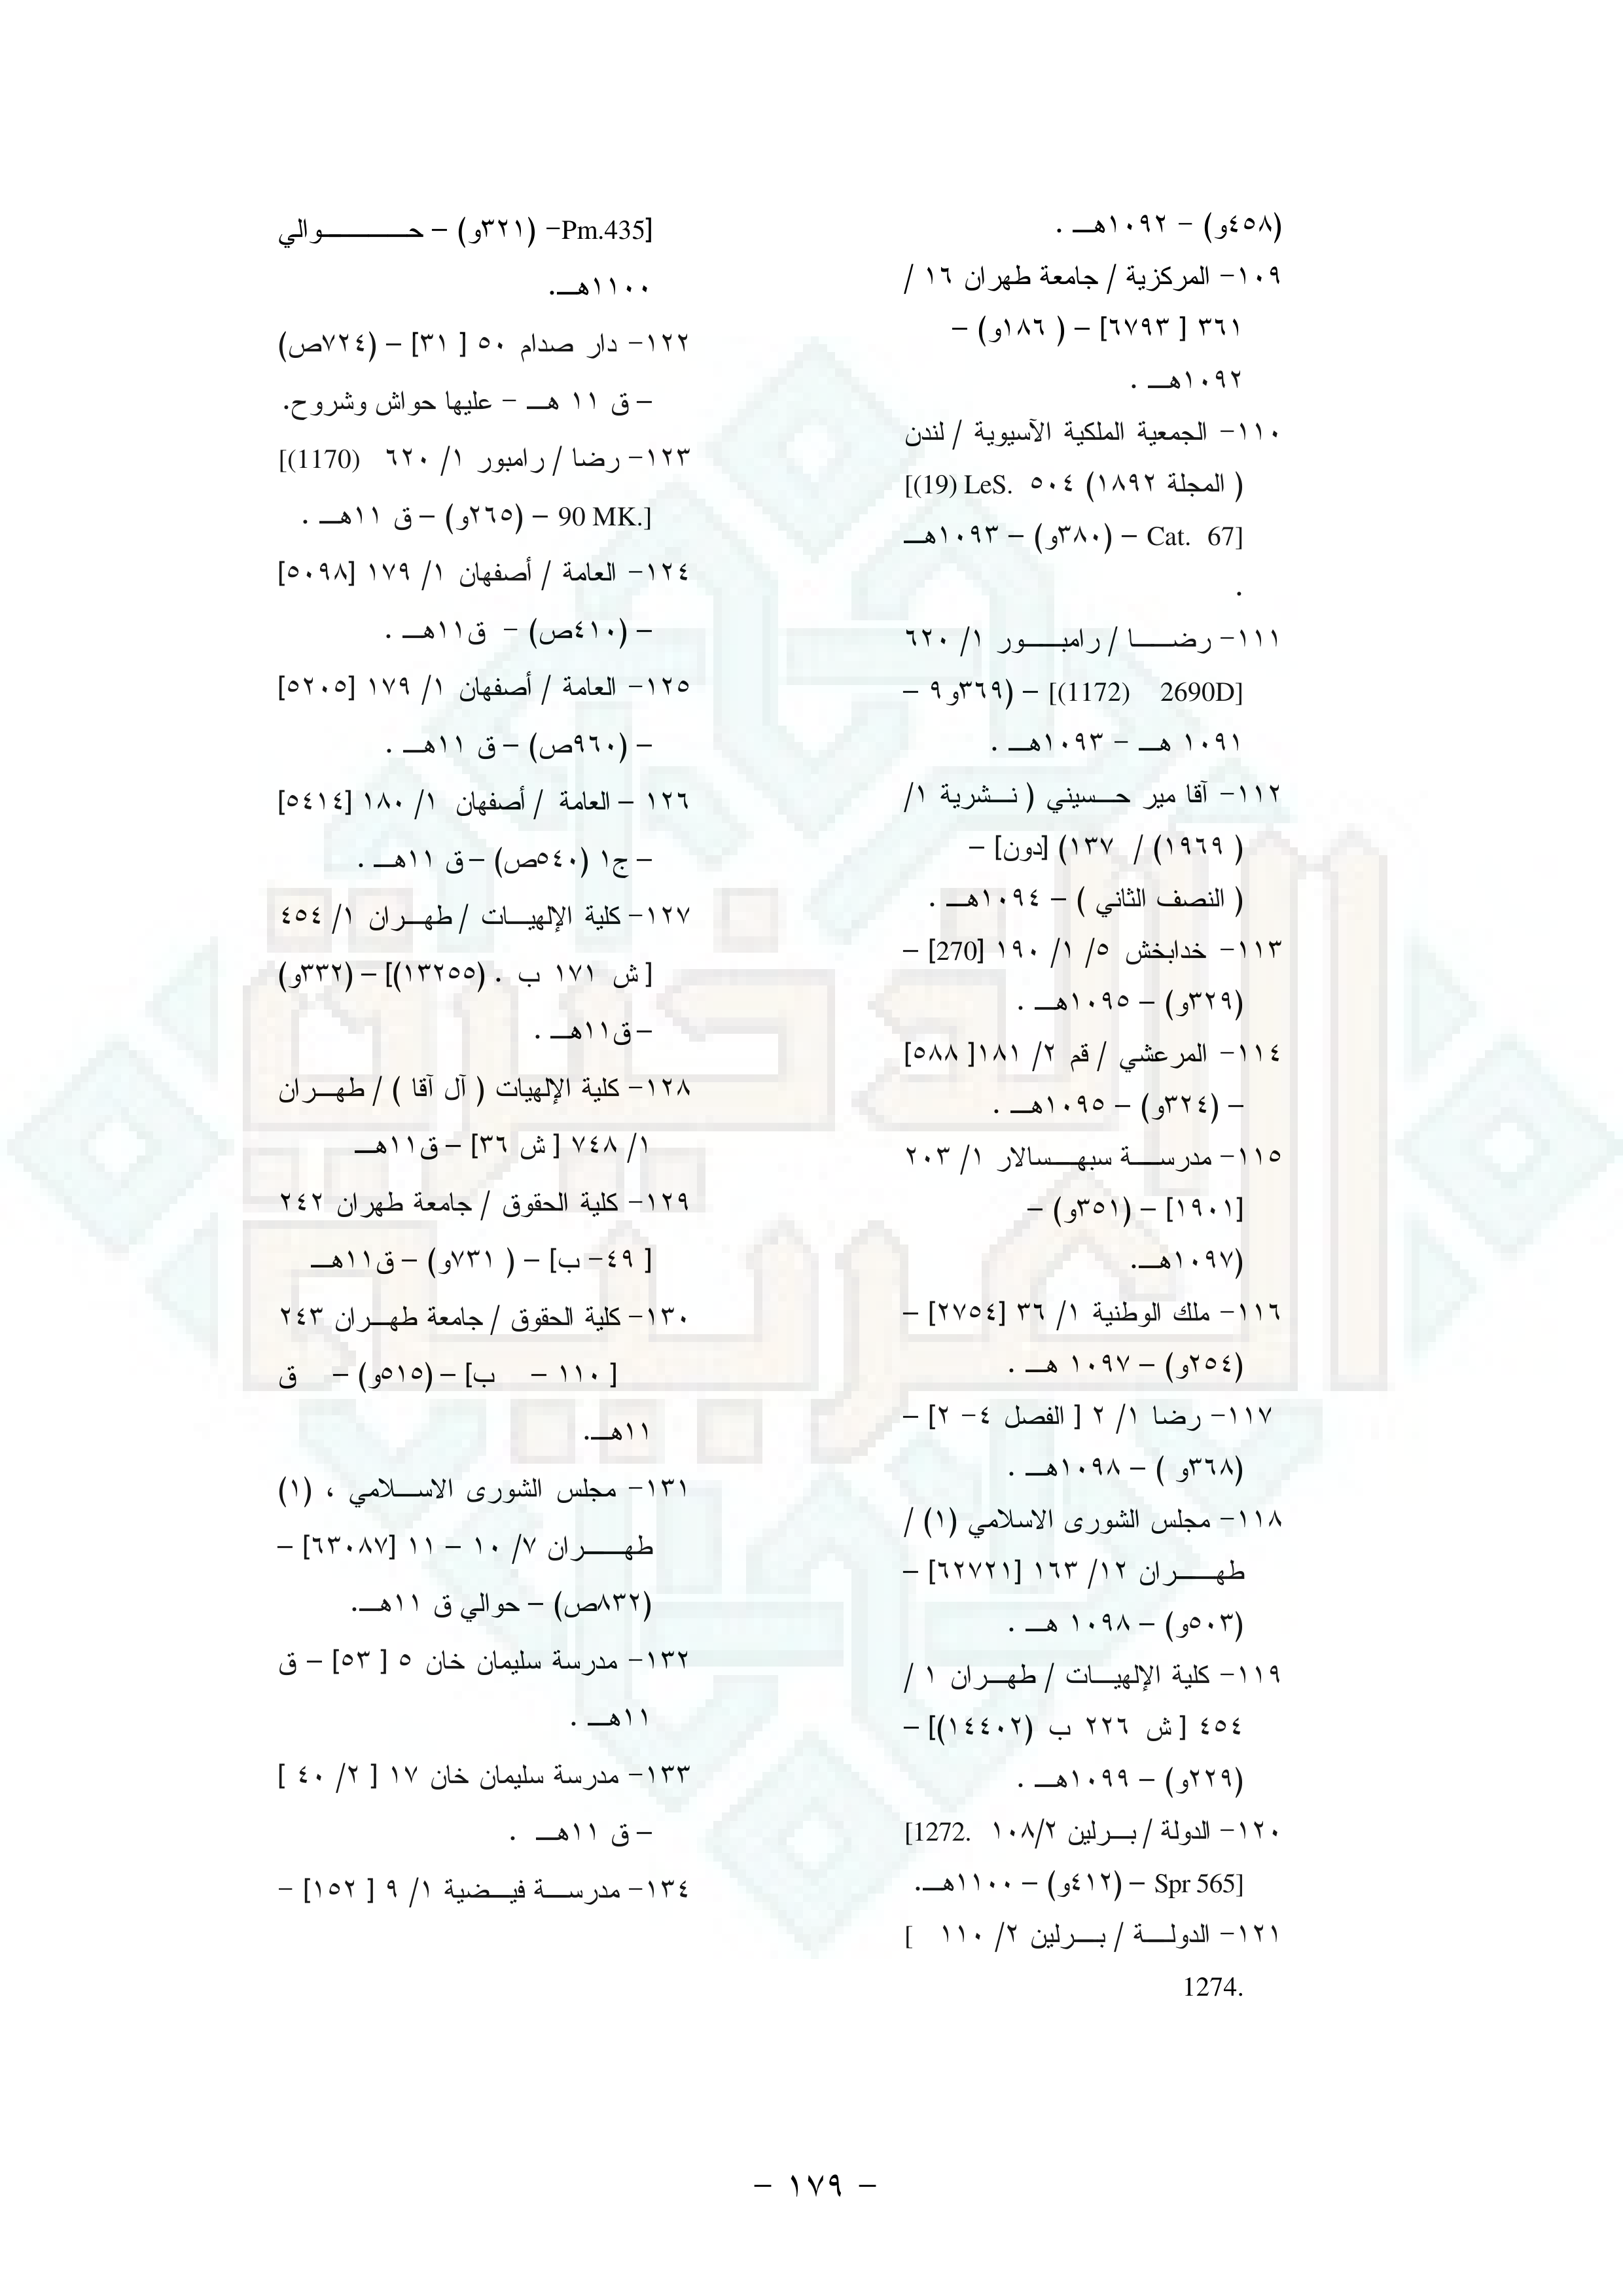 (٤٥٨و) – ١٠٩٢هـ .
١٠٩- المركزية / جامعة طهران ١٦ /
٣٦١ [ ٦٧٩٣] – ( ١٨٦و) –
١٠٩٢هـ .
١١٠- الجمعية الملكية الآسيوية / لندن
( المجلة ١٨٩٢) ٥٠٤ [(19) LeS.
Cat. 67] – (٣٨٠و) – ١٠٩٣هـ
.
١١١- رضا / رامبور ١/ ٦٢٠
[2690D (1172)] – (٣٦٩و٩ –
١٠٩١ هـ – ١٠٩٣هـ .
١١٢- آقا مير حسيني ( نشرية ١/
( ١٩٦٩) / ١٣٧) [دون] –
( النصف الثاني ) – ١٠٩٤هـ .
١١٣- خدابخش ٥/ ١/ ١٩٠ [270] –
(٣٢٩و) – ١٠٩٥هـ .
١١٤- المرعشي / قم ٢/ ١٨١[ ٥٨٨]
– (٣٢٤و) – ١٠٩٥هـ .
١١٥- مدرسة سبهسالار ١/ ٢٠٣
[١٩٠١] – (٣٥١و) –
(١٠٩٧هـ.
١١٦- ملك الوطنية ١/ ٣٦ [٢٧٥٤] –
(٢٥٤و) – ١٠٩٧ هـ .
١١٧- رضا ١/ ٢ [ الفصل ٤- ٢] –
(٣٦٨و ) – ١٠٩٨هـ .
١١٨- مجلس الشورى الاسلامي (١) /
طهران ١٢/ ١٦٣ [٦٢٧٢١] –
(٥٠٣و) – ١٠٩٨ هـ .
١١٩- كلية الإلهيات / طهران ١ /
٤٥٤ [ ش ٢٢٦ ب (١٤٤٠٢)] –
(٢٢٩و) – ١٠٩٩هـ .
١٢٠- الدولة / برلين ١٠٨/٢ [1272.
Spr 565] – (٤١٢و) – ١١٠٠هـ.
١٢١- الدولة / برلين ٢/ ١١٠ [
1274.
Pm.435]- (٣٢١و) – حوالي
١١٠٠هـ.
١٢٢- دار صدام ٥٠ [ ٣١] – (٧٢٤ص)
– ق ١١ هـ – عليها حواش وشروح.
١٢٣- رضا / رامبور ١/ ٦٢٠ [(1170)
90 MK.] – (٢٦٥و) – ق ١١هـ .
١٢٤- العامة / أصفهان ١/ ١٧٩ [٥٠٩٨]
– (٤١٠ص) – ق١١هـ .
١٢٥- العامة / أصفهان ١/ ١٧٩ [٥٢٠٥]
– (٩٦٠ص) – ق ١١هـ .
١٢٦ – العامة / أصفهان ١/ ١٨٠ [٥٤١٤]
– ج١ (٥٤٠ص) – ق ١١هـ .
١٢٧- كلية الإلهيات / طهران ١/ ٤٥٤
[ ش ١٧١ ب . (١٣٢٥٥)] – (٣٣٢و)
– ق١١هـ .
١٢٨- كلية الإلهيات ( آل آقا ) / طهران
١/ ٧٤٨ [ ش ٣٦] – ق١١هـ
١٢٩- كلية الحقوق / جامعة طهران ٢٤٢
[ ٤٩- ب] – ( ٧٣١و) – ق١١هـ
١٣٠- كلية الحقوق / جامعة طهران ٢٤٣
[ ١١٠ – ب] – (٥١٥و) – ق
١١هـ.
١٣١- مجلس الشورى الاسلامي ، (١)
طهران ٧/ ١٠ – ١١ [٦٣٠٨٧] –
(٨٣٢ص) – حوالي ق ١١هـ.
١٣٢- مدرسة سليمان خان ٥ [ ٥٣] – ق
١١هـ .
١٣٣- مدرسة سليمان خان ١٧ [ ٢/ ٤٠ ]
– ق ١١هـ .
١٣٤- مدرسة فيضية ١/ ٩ [ ١٥٢] –
– ١٧٩ –
الذخيرة
العربية